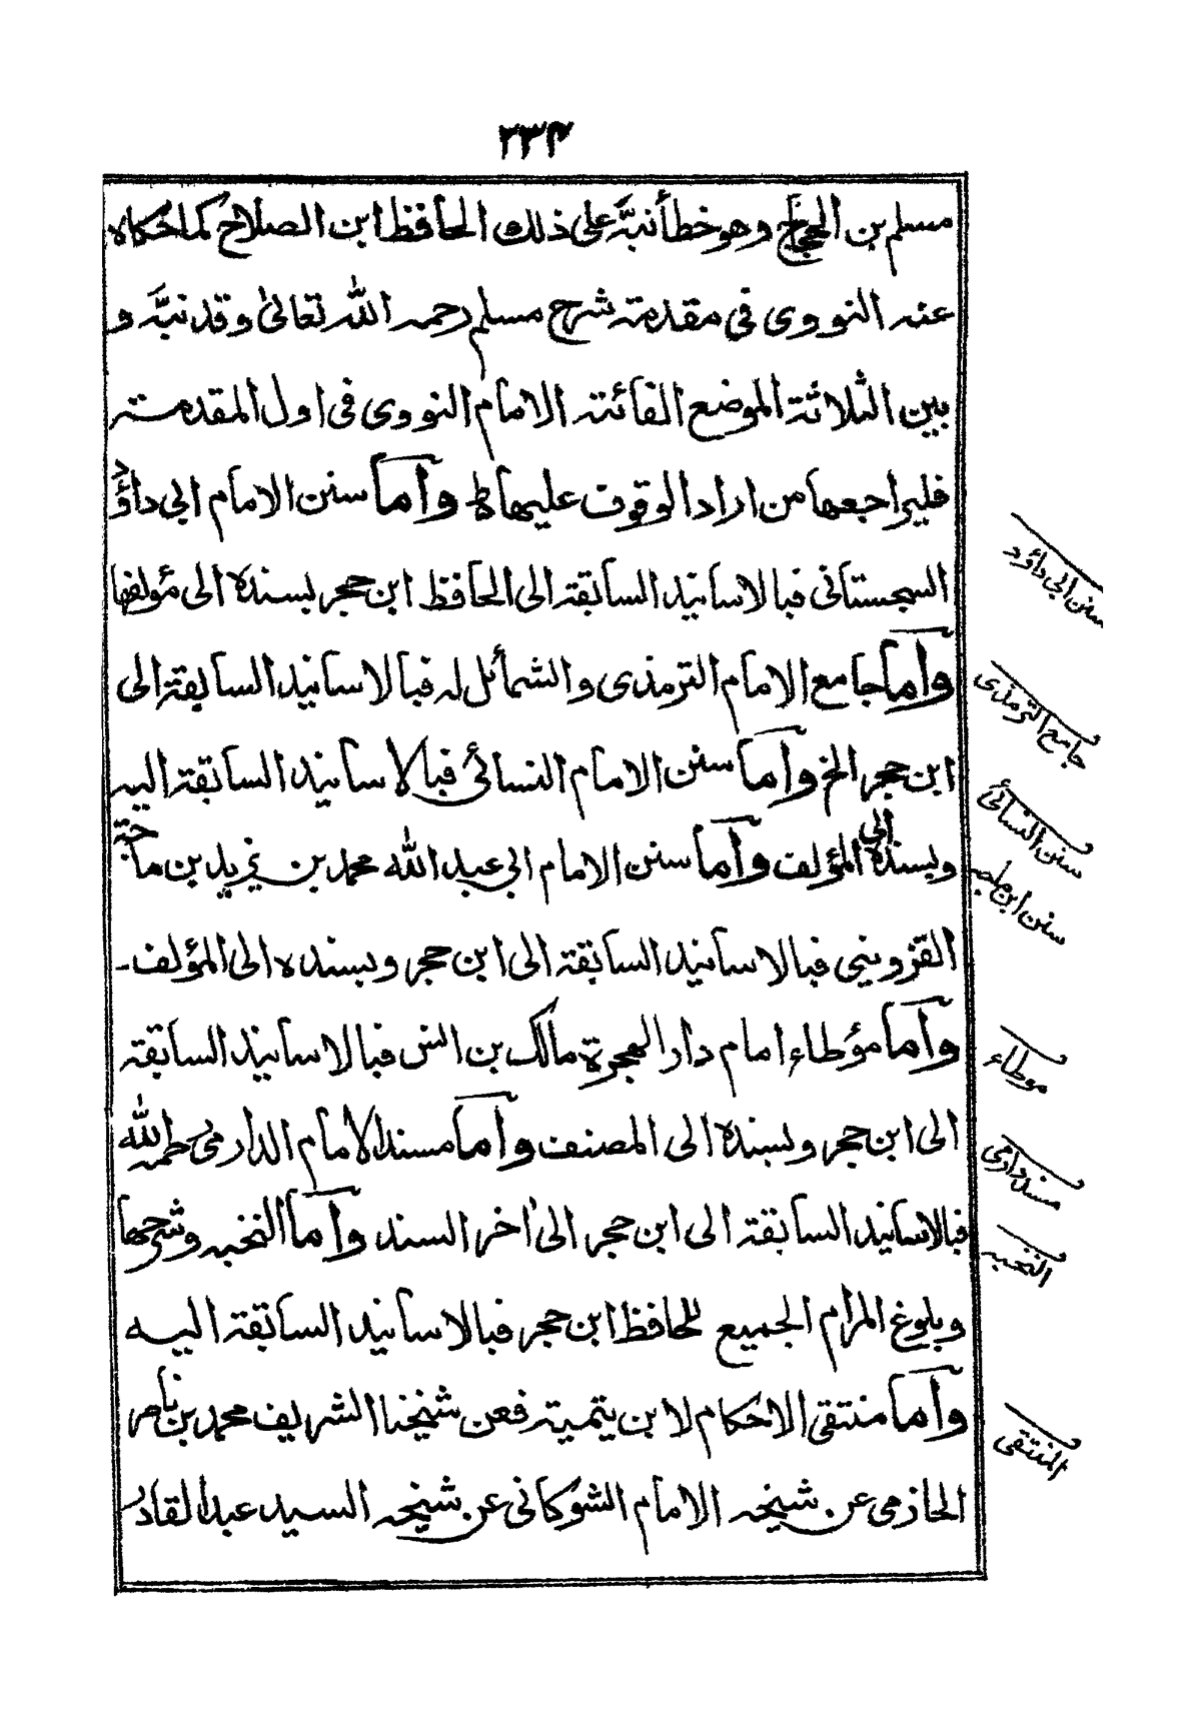 ٢٣٤
مسلم بن الحجاج وهو خطأ نبَّه على ذلك الحافظ ابن الصلاح كما حكاه
عنه النووى فى مقدمة شرح مسلم رحمه الله تعالىٰ وقد نبَّه و
بين الثلاثة الموضع الفائتة الامام النووى فى اول المقدمة
فليراجعها من اراد الوقوف عليها وأما سنن الامام ابى داؤد
السجستانى فبالاسانيد السابقة الى الحافظ ابن حجر بسنده الى مؤلفها
وأما جامع الامام الترمذى والشمائل له فبالاسانيد السابقة الى
ابن حجر الخ وأما سنن الامام النسائى فبالاسانيد السابقة اليه
وبسنده الى المؤلف وأما سنن الامام ابى عبد الله محمد بن يزيد بن ماجة
القزوينى فبالاسانيد السابقة الى ابن حجر وبسنده الى المؤلف ـ
وأما مؤطاء امام دار الهجرة مالك بن انس فبالاسانيد السابقة
الى ابن حجر وبسنده الى المصنف وأما مسند الامام الدارمى رحمه الله
فبالاسانيد السابقة الى ابن حجر الىٰ اٰخر السند وأما النخبه وشرحها
وبلوغ المرام الجميع للحافظ ابن حجر فبالاسانيد السابقة اليه
وأما منتقى الاحكام لابن تيمية فعن شيخنا الشريف محمد بن ناصر
الحازمى عن شيخه الامام الشوكانى عن شيخه السيد عبد القادر
سنن ابى داؤد
جامع الترمذى
سنن النسائى
سنن ابن ماجه
موطاء
مسند دارمى
النخبه
المنتقى